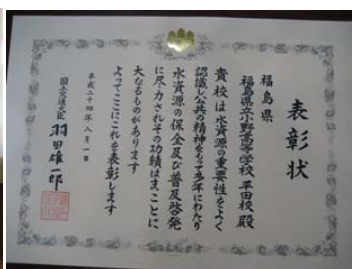 表彰状
福島県
福島県立小野高等学校 平田校 殿
貴校は水資源の重要性をよく
認識し公共の精神をもって多年にわたり
水資源の保全及び普及啓発
に尽力されその功績はまことに
大なるものがあります
よってここにこれを表彰します
平成二十四年八月一日
国土交通大臣 羽田雄一郎